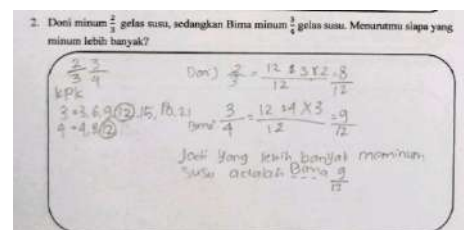 2. Doni minum 2/3 gelas susu, sedangkan Bima minum 3/4 gelas susu. Menurutmu siapa yang
minum lebih banyak?
2/3 3/4
KPK
3 = 3, 6, 9, 12, 15, 18, 21
4 = 4, 8, 12
Doni) 2/3 = 12 : 3 x 2 / 12 = 8/12
Bima 3/4 = 12 : 4 x 3 / 12 = 9/12
Jadi yang lebih banyak maminum
susu adalah Bima 9/12